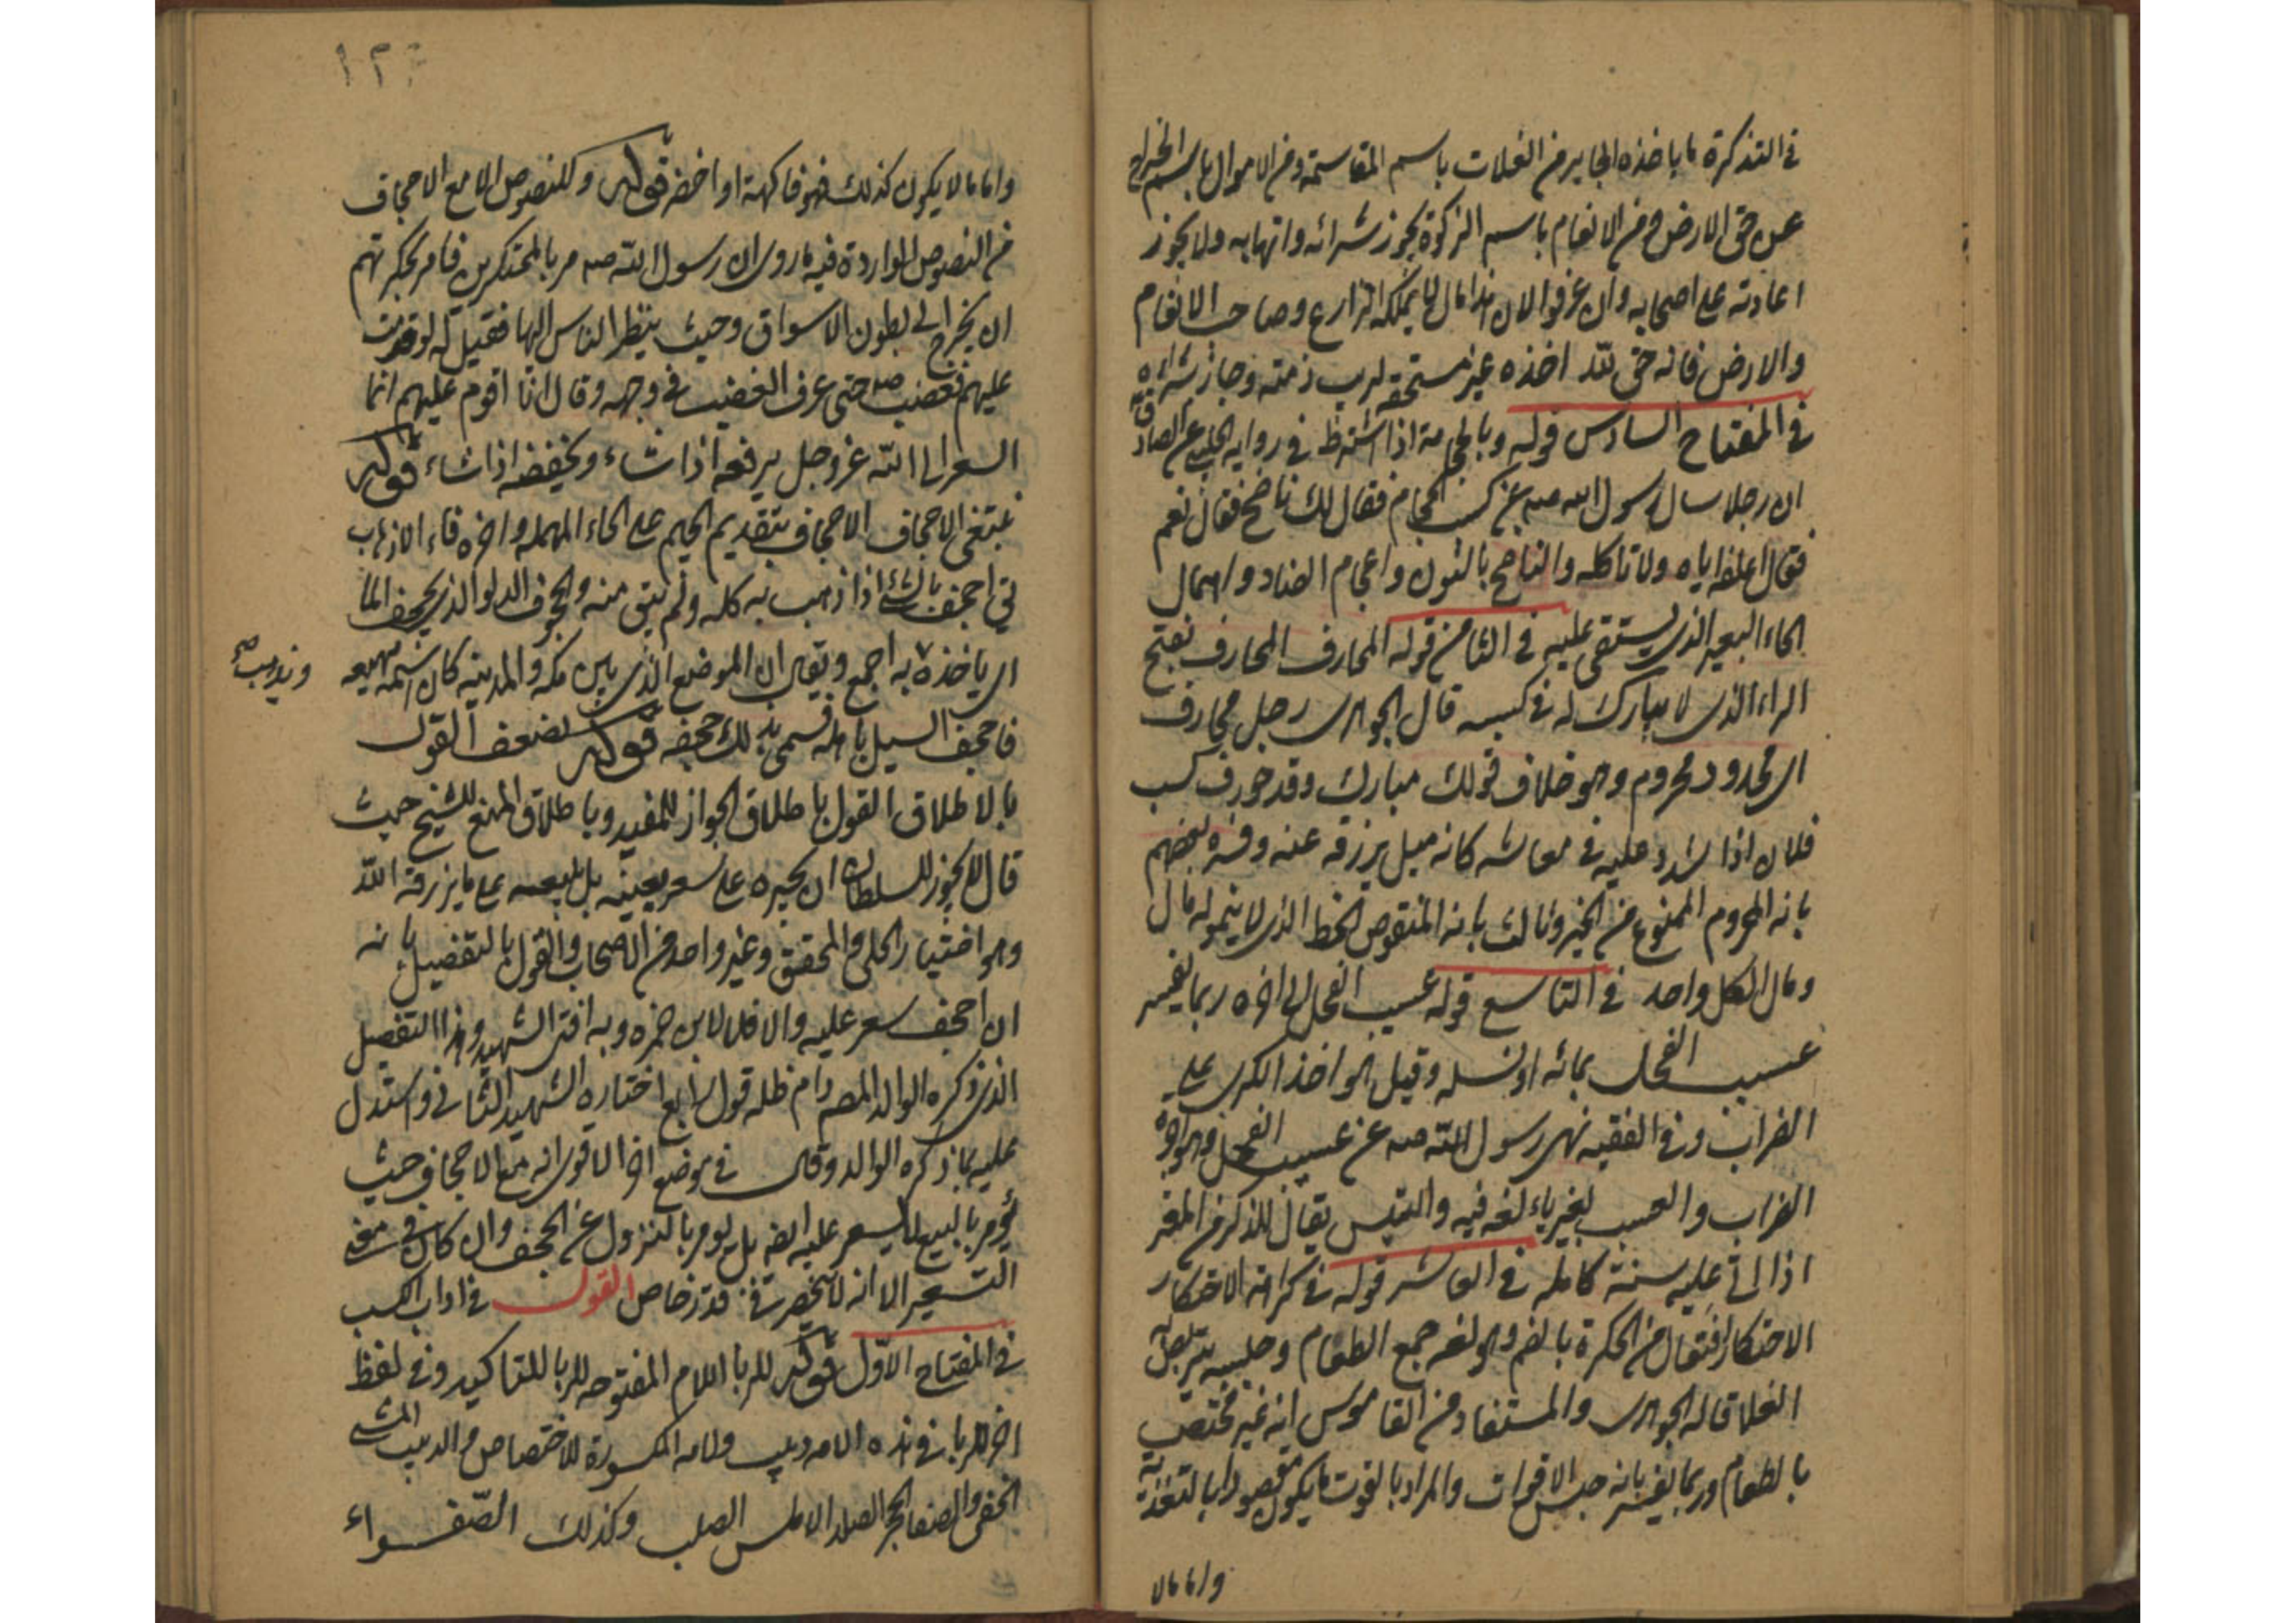 في التذكرة ما ياخذه الجاير من الغلات باسم المقاسمة ومن الاموال باسم الخراج
عن حق الارض ومن الانعام باسم الزكوة يجوز شرائه واتهابه ولا يجوز
اعادته على اصحابه وان عرفوا لان هذا مال لا يملكه الزارع وصاحب الانعام
والارض فانه حق لله اخذه غير مستحقه فبرئت ذمته وجاز شراؤه
في المفتاح السادس قوله وبالحجامة اذا اشترط في رواية الحلبي عن الصادق
ان رجلا سال رسول الله صه عن كسب الحجام فقال لك ناضح فقال نعم
فقال اعلفه اياه ولا تاكله والناضح بالنون واعجام الضاد واهمال
الحاء البعير الذي يستقى عليه في الثامن قوله المحارف المحارف بفتح
الراء الذي لا يبارك له في كسبه قال الجوهري رجل محارف
اي محدود محروم وهو خلاف قولك مبارك وقد حورف كسب
فلان اذا شدد عليه في معاشه كانه ميل برزقه عنه وفسره بعضهم
بانه المحروم الممنوع من الخير وثالث بانه المنقوص الحظ الذي لا ينمو له مال
ومال الكل واحد في التاسع قوله عسيب الفحل الى اخره ربما يفسر
عسيب الفحل بمائه او نسله وقيل هو اخذ الكرى على
الضراب وفي الفقيه نهى رسول الله صه عن عسيب الفحل وهو اجرة
الضراب والعسب بغير ياء لغة فيه والتيس يقال للذكر من المعز
اذا اتى عليه سنة كاملة في العاشر قوله في كراهة الاحتكار
الاحتكار افتعال من الحكرة بالضم وهو لغة جمع الطعام وحبسه يتربص به
الغلا قاله الجوهري والمستفاد من القاموس انه غير مختص
بالطعام وربما يفسر بانه حبس الاقوات والمراد بالقوت ما يكون مقصودا بالتغذية
واما ما لا
١٢
واما ما لا يكون كذلك فهو فاكهة او اخضر قوله وللنصوص الا مع الاجحاف
من النصوص الواردة فيه ما روى ان رسول الله صه مر بالمحتكرين فامر بحكرتهم
ان يخرج الى بطون الاسواق وحيث ينظر الناس اليها فقيل له لو قومت
عليهم فغضب صه حتى عرف الغضب في وجهه وقال انا اقوم عليهم انما
السعر الى الله عز وجل يرفعه اذا شاء ويخفضه اذا شاء قوله
ينتفي الاجحاف الاجحاف بتقديم الجيم على الحاء المهملة واخره فاء الاذهاب
يق اجحف بالشئ اذا ذهب به كله ولم يبق منه والجحوف الدلو الذي يجحف الما
اي ياخذه به اجمع ويقال ان الموضع الذي بين مكه والمدينه كان اسمه مهيعه
ويذهب صح
فاجحف السيل باهله فسمى بذلك جحفه قوله لضعف القول
بالاطلاق القول باطلاق الجواز للمفيد وباطلاق المنع للشيخ حيث
قال لا يجوز للسلطان ان يجبره على سعر بعينه بل يبيعه على ما يرزقه الله
وهو اختيار الحلي والمحقق وغير واحد من الاصحاب والقول بالتفصيل بانه
ان اجحف سعر عليه والا فلا لابن حمزه وبه افتى الشهيد وهذا التفصيل
الذي ذكره الوالد المص دام ظله قول رابع اختاره الشهيد الثاني واستدل
عليه بما ذكره الوالد وقال في موضع اخر الاقوى انه مع الاجحاف حيث
يؤمر بالبيع لا يسعر عليه ايضا بل يؤمر بالنزول عن المجحف وان كان في معنى
التسعير الا انه لا يحصر في قدر خاص القول في اداب الكسب
في المفتاح الاول قوله للربا اللام المفتوحه للربا للتاكيد وفي لفظ
اخر للربا في هذه الامة دبيب ولامه المكسورة للاختصاص والدبيب المشي
الخفي والصفا الحجر الصلد الاملس الصلب وكذلك الصفواء